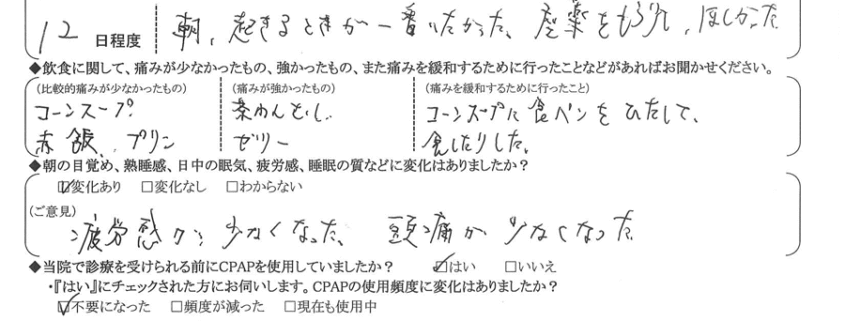 12 日程度 朝、起きるときが一番いたかった。座薬をもらえ、ほしかった
◆飲食に関して、痛みが少なかったもの、強かったもの、また痛みを緩和するために行ったことなどがあればお聞かせください。
(比較的痛みが少なかったもの) (痛みが強かったもの) (痛みを緩和するために行ったこと)
コーンスープ 茶わんむし コーンスープに食パンをひたして、
赤飯、プリン ゼリー 食したりした。
◆朝の目覚め、熟睡感、日中の眠気、疲労感、睡眠の質などに変化はありましたか?
☑変化あり □変化なし □わからない
(ご意見)
疲労感が少なくなった、頭痛が少なくなった
◆当院で診療を受けられる前にCPAPを使用していましたか? ☑はい □いいえ
・『はい』にチェックされた方にお伺いします。CPAPの使用頻度に変化はありましたか?
☑不要になった □頻度が減った □現在も使用中